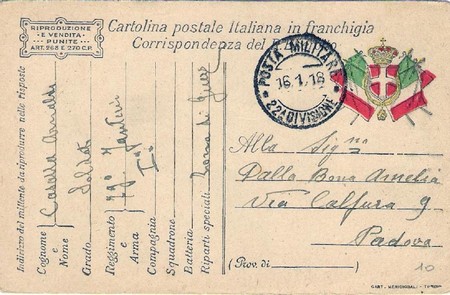 RIPRODUZIONE
E VENDITA
PUNITE
ART. 268 E 270 C.P.
Cartolina postale Italiana in franchigia
Corrispondenza del
POSTA MILITARE
16.1.18
22ª DIVISIONE
Indirizzo del mittente da riprodurre nelle risposte
Cognome e Nome Casella
Grado Soldato
Reggimento e Arma
Compagnia
Squadrone
Batteria
Riparti speciali Zona di Guerra
Alla Signa
Dalla Bona Amelia
Via Calfura 9
Padova
(Prov. di )
10